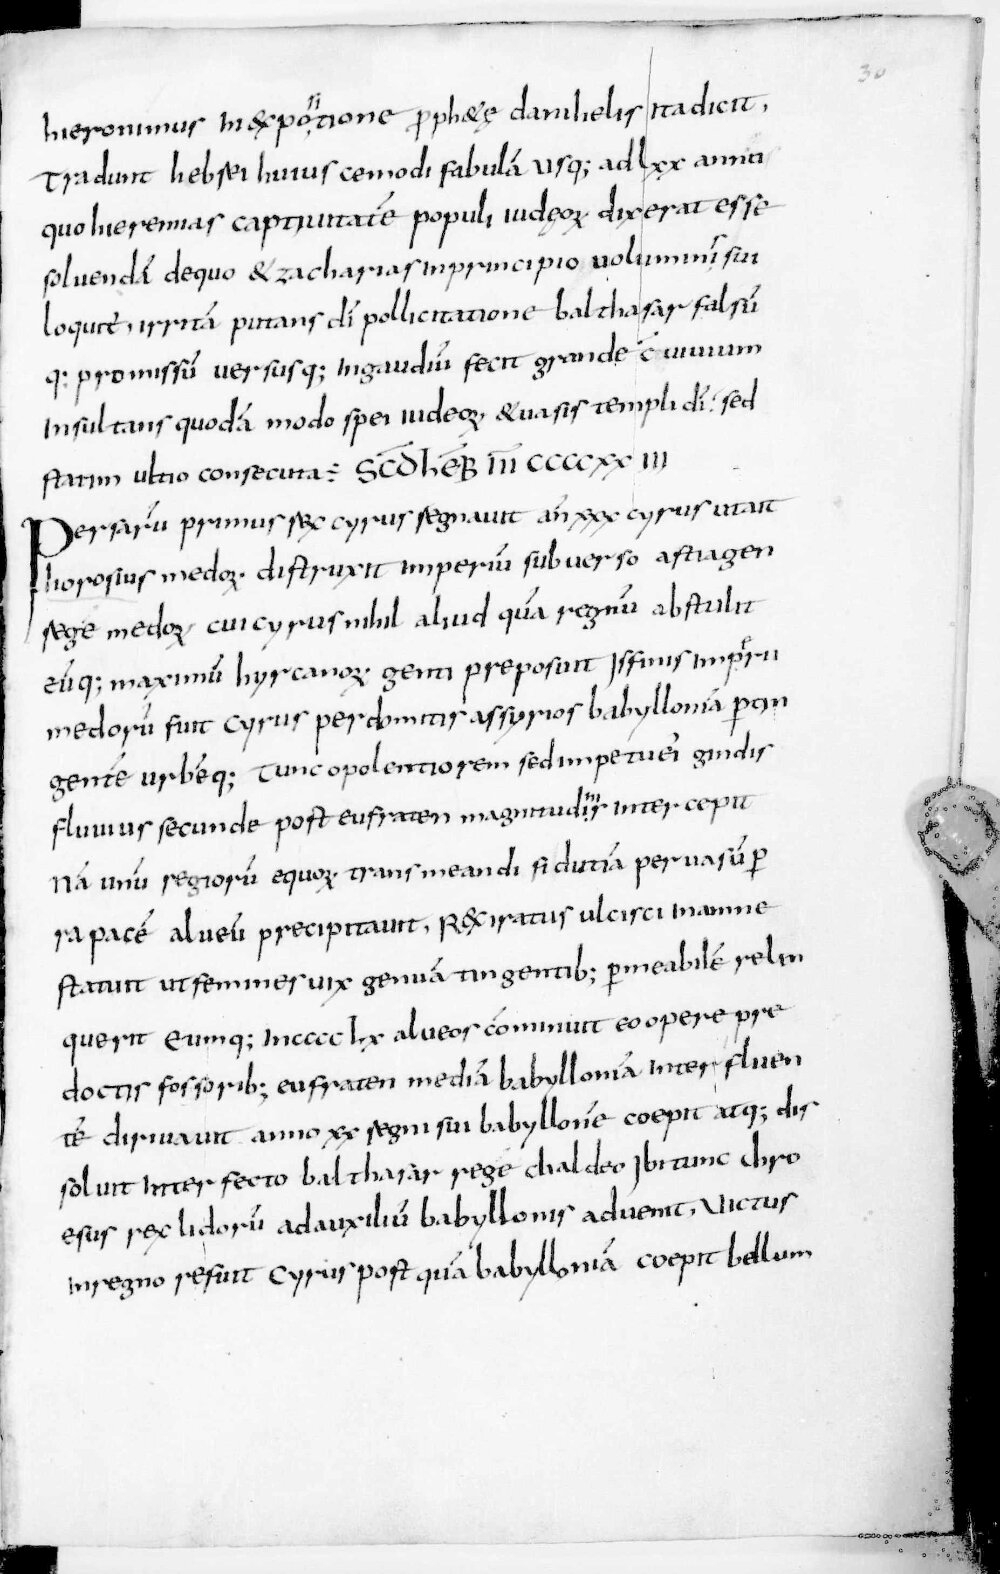 30
hieronimus in expoñtione p̄ph&ę danihelis ita dicit,
Tradunt hebrei huius cemodi fabulā usq; ad lxx annū
quo hieremias captiuitatē populi iudęoꝝ dixerat esse
soluendā dequo & zacharias inprincipio uoluminis sui
loquit̄, irritā putans dī pollicitatione balthasar falsū
q; promissū uersusq; ingaudiū fecit grande c̄uiuium
Insultans quodā modo spei iudeoꝝ &uasis templi dī: sed
statim ultio consecuta÷ SCD̄ hEB̄ IIĪ CCCCXXIII
Persarū primus rex cyrus regnauit an̄ xxx cyrus ut ait
horosius medoꝝ distruxit imperiū subuerso astiagen
rege medoꝝ cui cyrus nihil aliud quā regnū abstulit
eūq; maximū hyrcanoꝝ genti preposuit Is finis imprīi
medorū fuit cyrus perdomitis assyrios babylloniā ꝑtin
gentē urbēq; Tunc opolentiorem sed impetuei gindis
fluuius secunde post eufraten magnitudinis inter cepit
Nā unū regiorū equoꝝ transmeandi fidutiā peruasū ꝑ
rapacē alueū precipitauit, R&x iratus ulcisci inamne
statuit ut feminis uix genuā tingentib; ꝑmeabilē relin
querit Eumq; incccc lx alueos cōminuit eo opere pre
doctis fossorib; eufraten mediā babylloniā inter fluen
tē diriuauit anno xx regni sui babyllonē coepit atq; dis
soluit Inter fecto balthasar rege chaldeo Ibi tunc chro
esus rex lidorū adauxiliū babyllonis aduenit, Victus
inregno refuit Cyrus post quā babylloniā coepit bellum